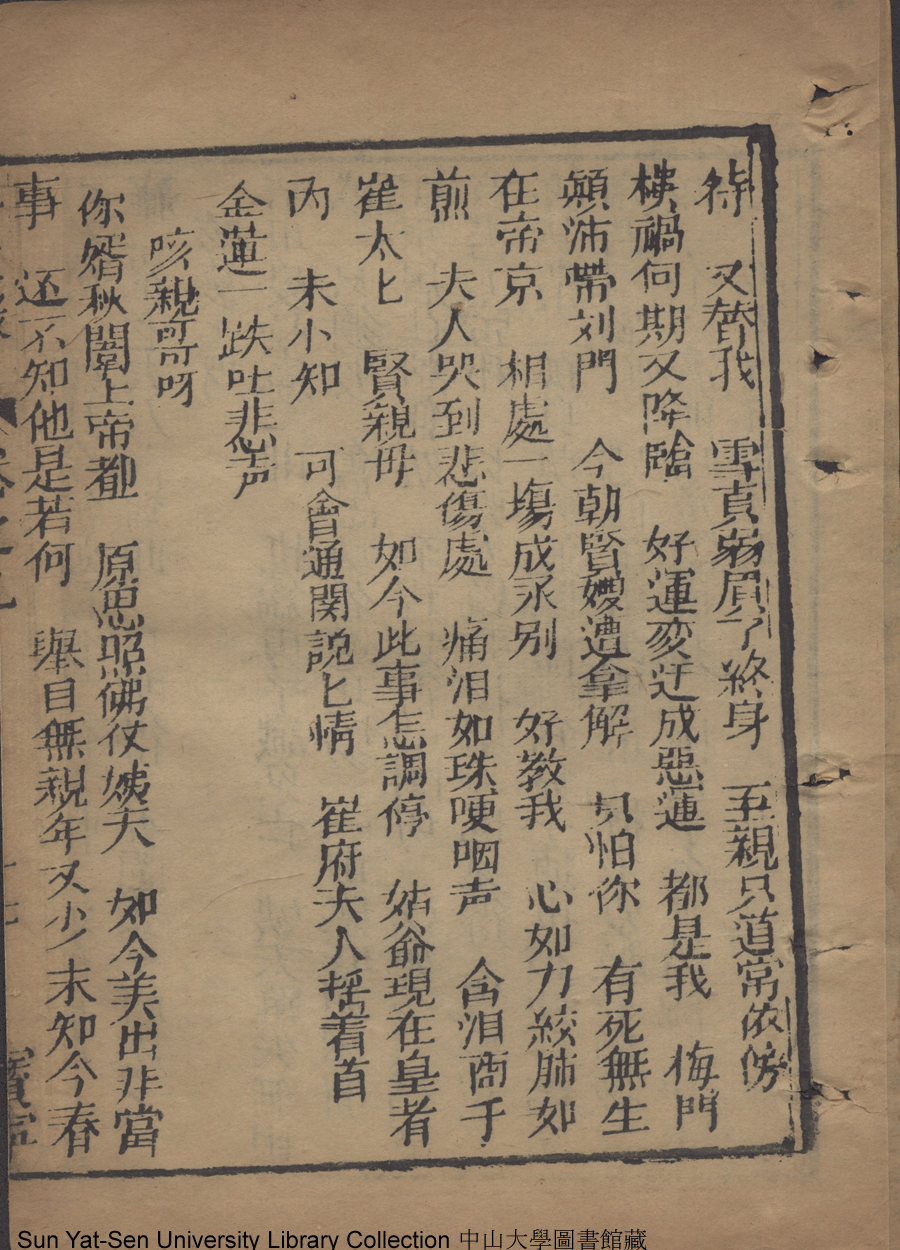 待　又替我　雪貞蛾眉了終身　至親只道常依傍
橫禍何期又降臨　好運变迁成惡運　都是我　悔門
顛沛帶刘門　今朝賢嫂遭拿解　只怕你　有死無生
在帝京　相處一塲成永别　好教我　心如刀絞肺如
煎　夫人哭到悲傷處　痛泪如珠哽咽声　含泪商于
崔太匕　賢親毋　如今此事怎調停　姑爺現在皇者
內　未小知　可會通関説匕情　崔府夫人摇着首
金蓮一跌吐悲声
咳親哥哥呀
你婿秋闈上帝都　原思照佛仗姨夫　如今美出非當
事　还不知他是若何　舉目無親年又少　未知今春
Sun Yat-Sen University Library Collection 中山大學圖書館藏